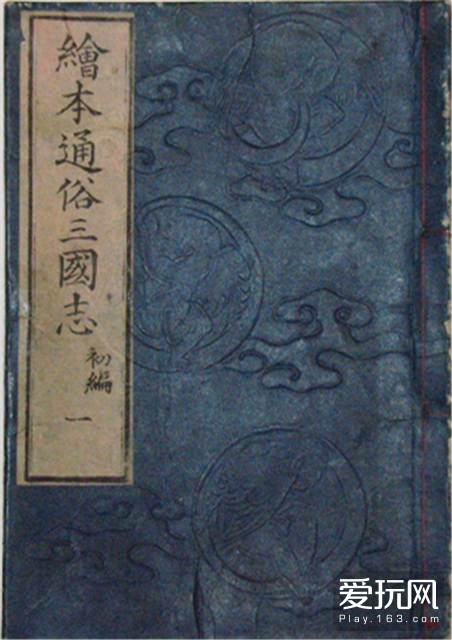 繪本通俗三國志
初編
一
爱玩网
Play.163.com